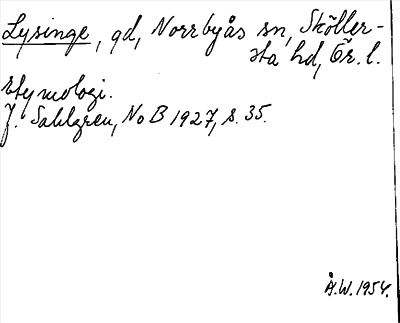 Lysinge, gd, Norrbyås sn, Sköller-
sta hd, Ör. l.
Etymologi.
J. Sahlgren, NoB 1927, s. 35.
Å.W. 1954.